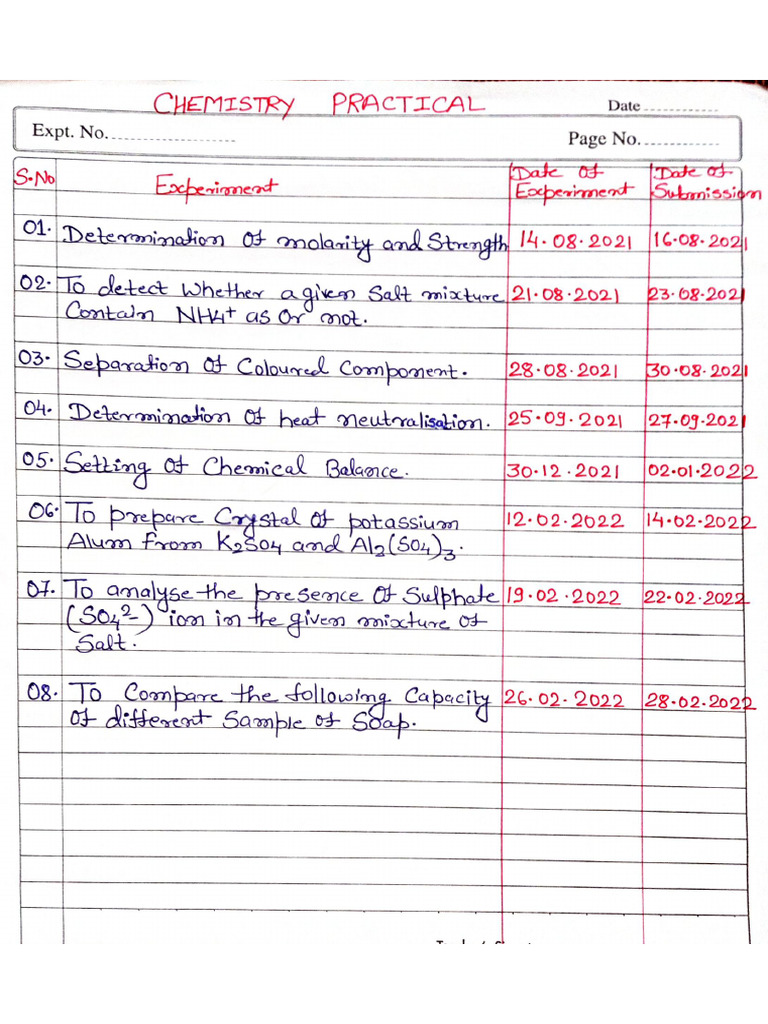 CHEMISTRY PRACTICAL Date
Expt. No. Page No.
S.No Experiment Date of Experiment Date of Submission
01. Determination of molarity and Strength 14.08.2021 16.08.2021
02. To detect whether a given Salt mixture 21.08.2021 23.08.2021
Contain NH4+ as or not.
03. Separation of Coloured Component. 28.08.2021 30.08.2021
04. Determination of heat neutralisation. 25.09.2021 27.09.2021
05. Setting of Chemical Balance. 30.12.2021 02.01.2022
06. To prepare Crystal of potassium 12.02.2022 14.02.2022
Alum from K2SO4 and Al2(SO4)3.
07. To analyse the presence of Sulphate 19.02.2022 22.02.2022
(SO42-) ion in the given mixture of
Salt.
08. To Compare the following Capacity 26.02.2022 28.02.2022
of different Sample of Soap.